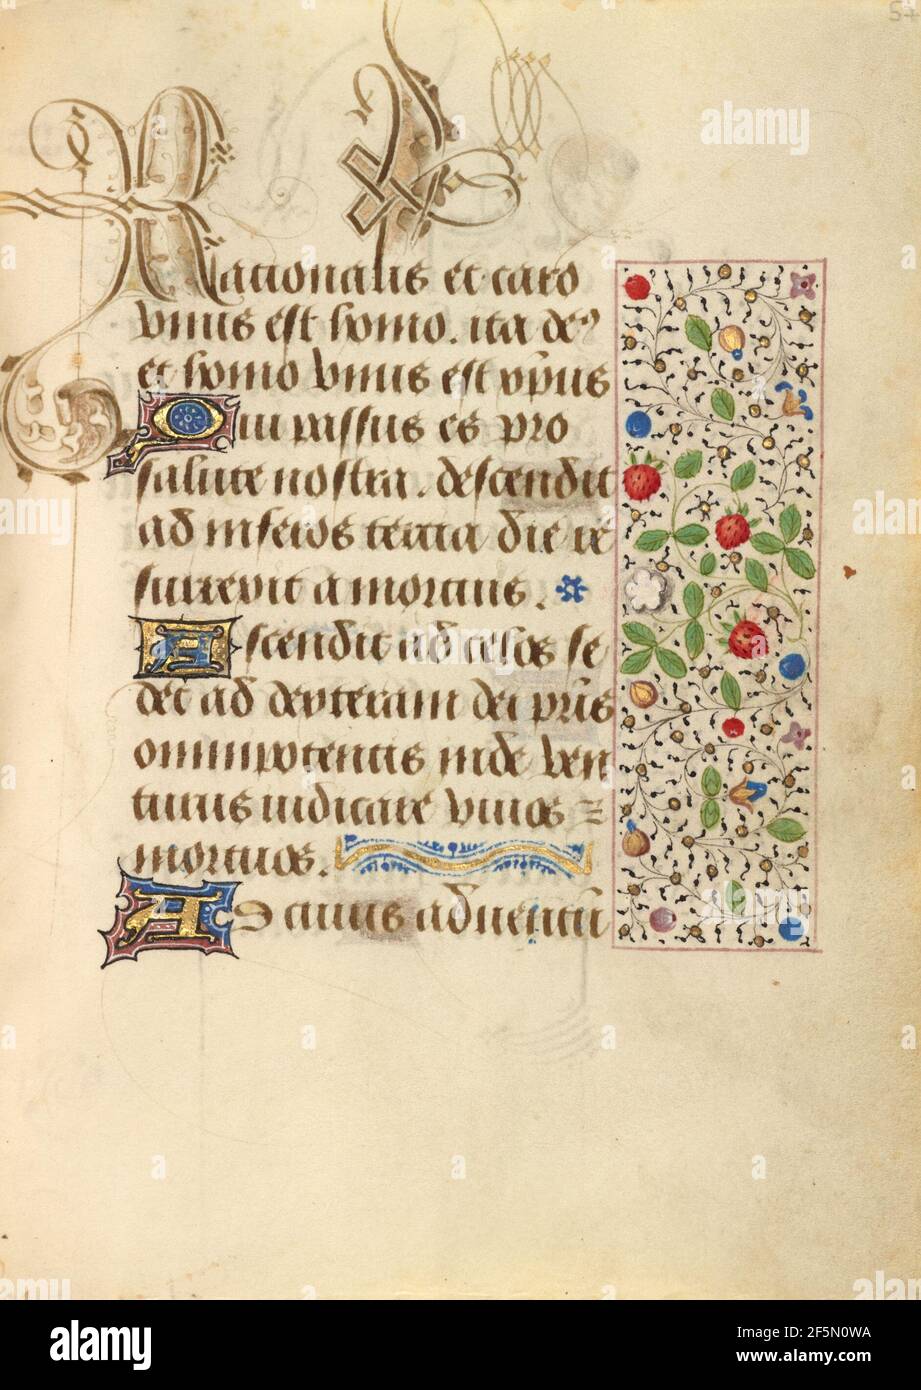 57
Racionalis et caro
vnus est homo. ita de9
et homo vnus est xp̄us
Qui passus es pro
salute nostra. descendit
ad inferos tercia die re
surrexit a mortuis.
Ascendit ad celos se
det ad dexteram dei pr̄is
omnipotentis inde ven
turus iudicare viuos ⁊
mortuos.
Ad cuius aduentū
alamy
Image ID: 2F5N0WA
www.alamy.com